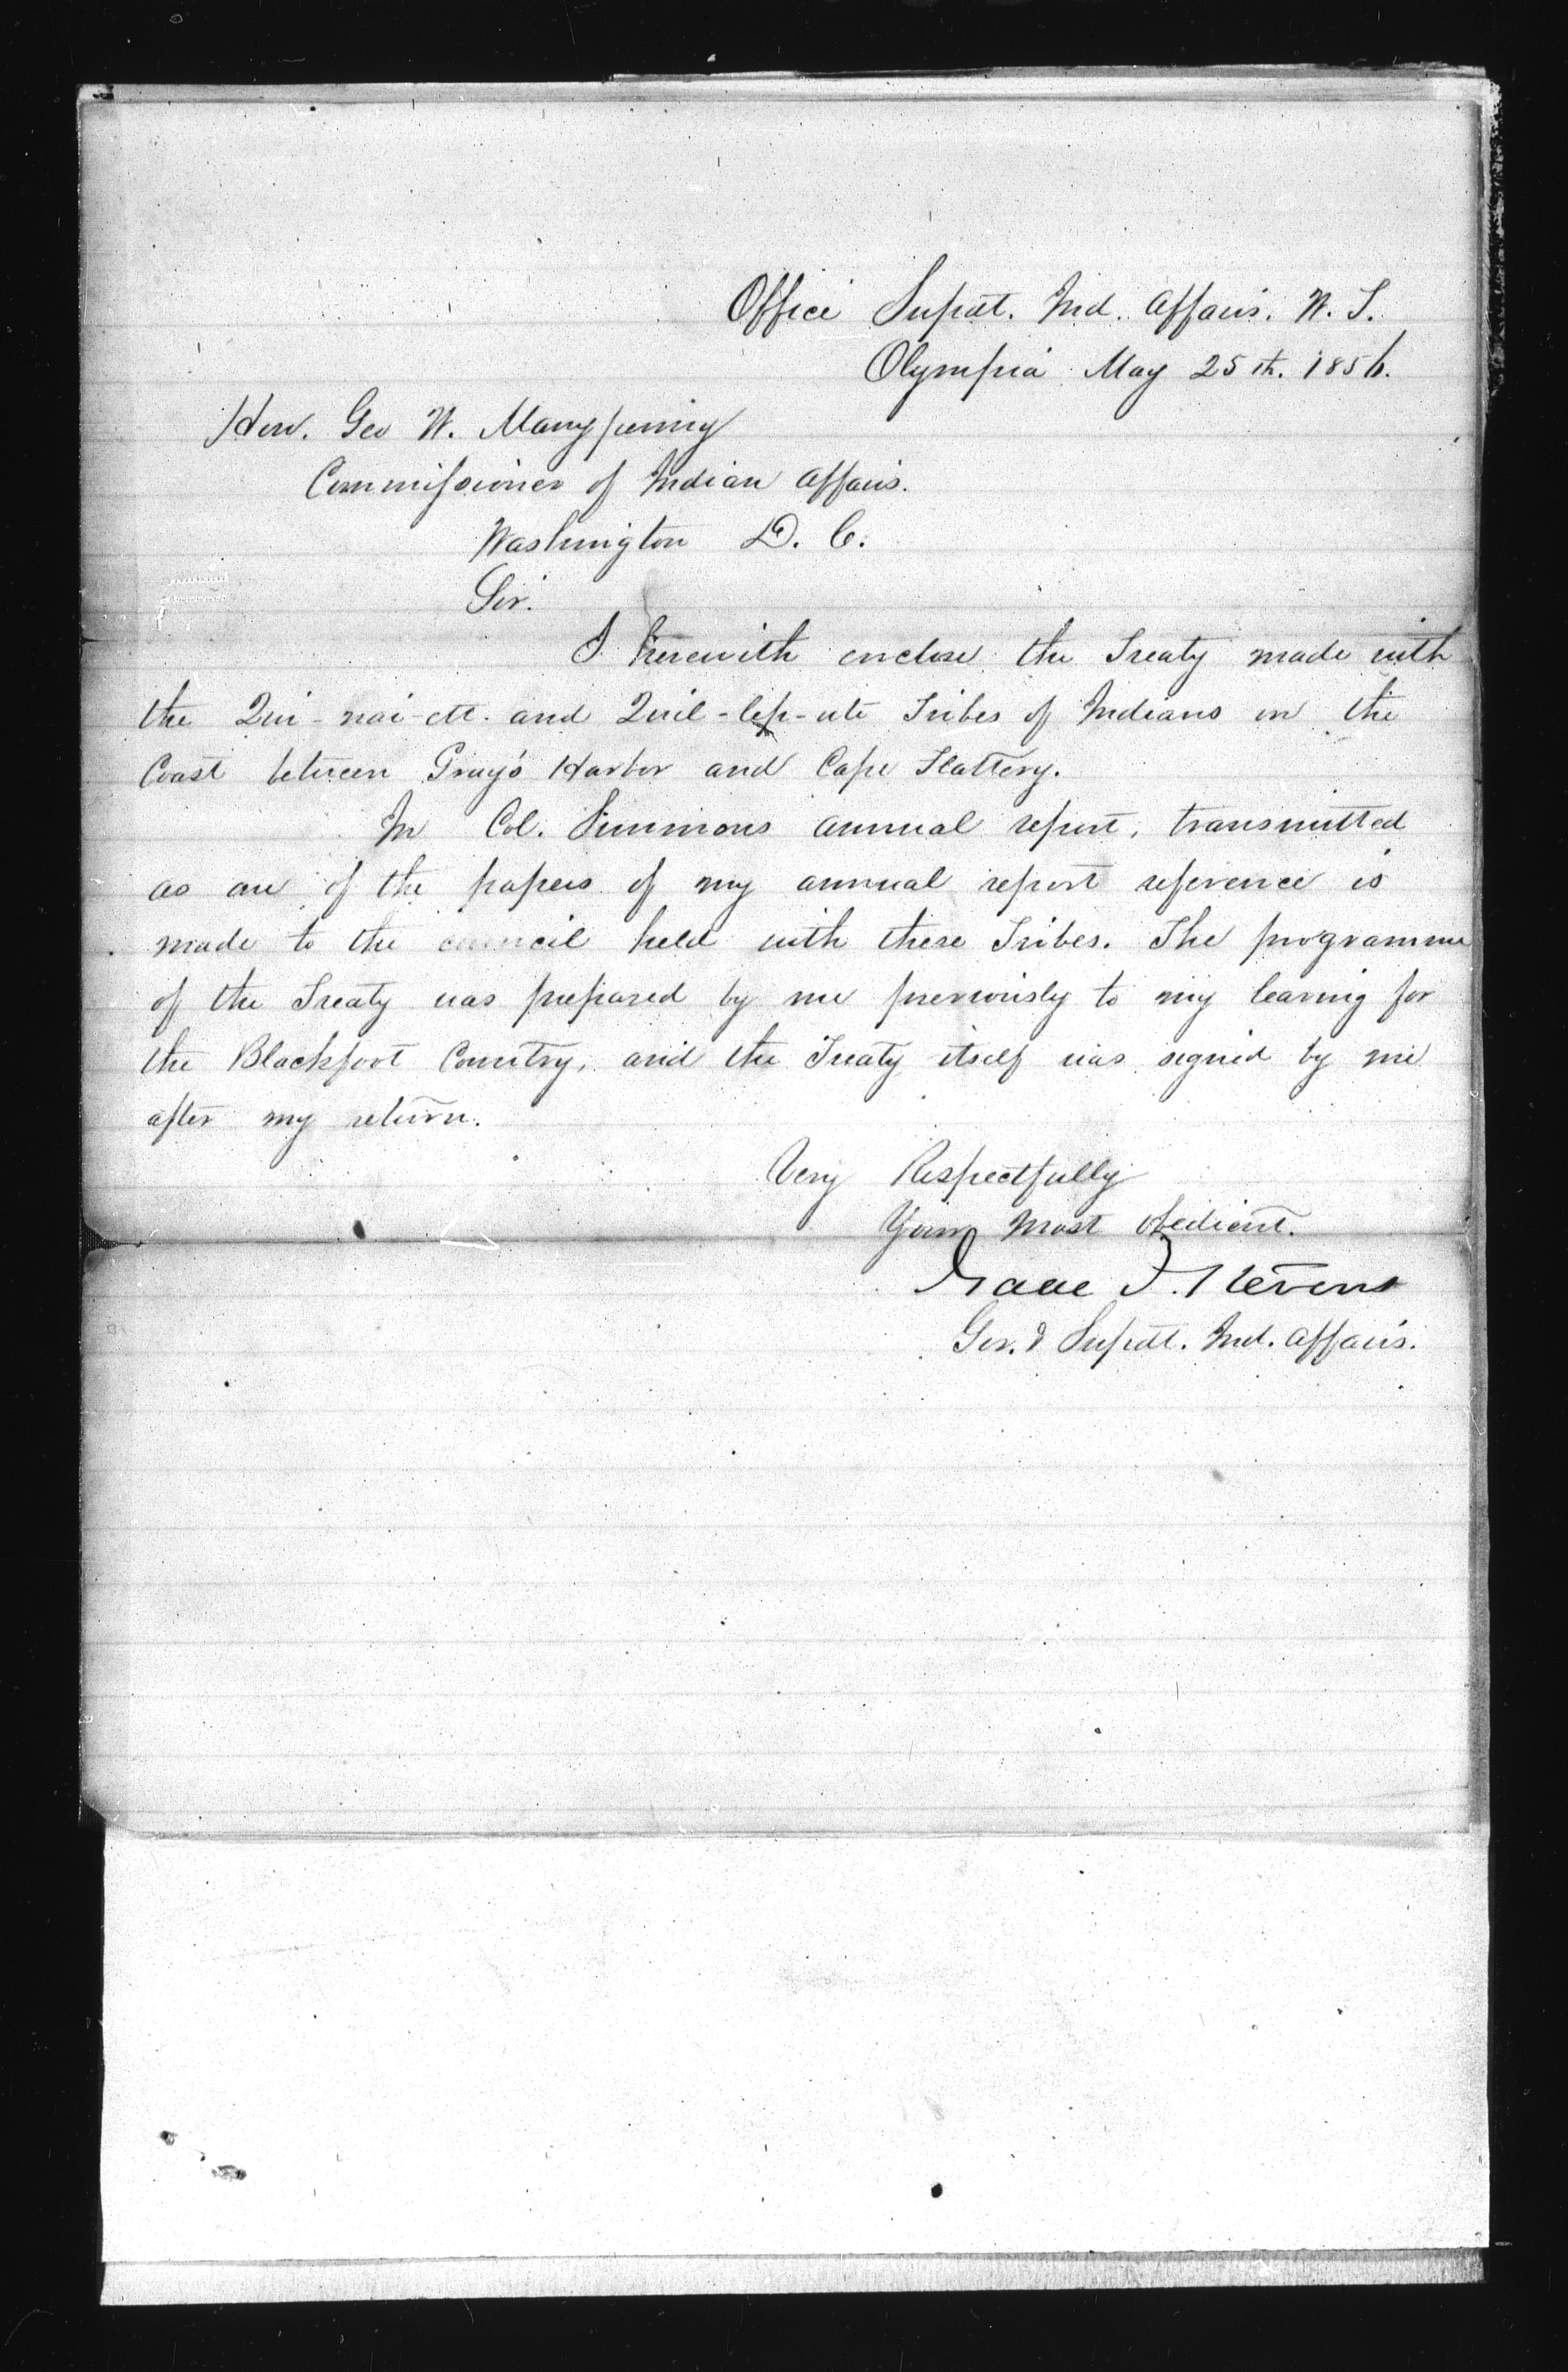 Office Supdt. Ind. Affairs. W. T.
Olympia May 25th. 1856.
Hon. Geo W. Manypenny
Commissioner of Indian Affairs.
Washington D. C.
Sir.
I herewith enclose the Treaty made with
the Qui-nai-elt. and Quil-leh-ute Tribes of Indians on the
Coast between Gray's Harbor and Cape Flattery.
In Col. Simmons annual report, transmitted
as one of the papers of my annual report reference is
made to the council held with these Tribes. The programme
of the Treaty was prepared by me previously to my leaving for
the Blackfoot Country, and the Treaty itself was signed by me
after my return.
Very Respectfully
Your Most obedient.
Isaac I. Stevens
Gov. & Supdt. Ind. Affairs.